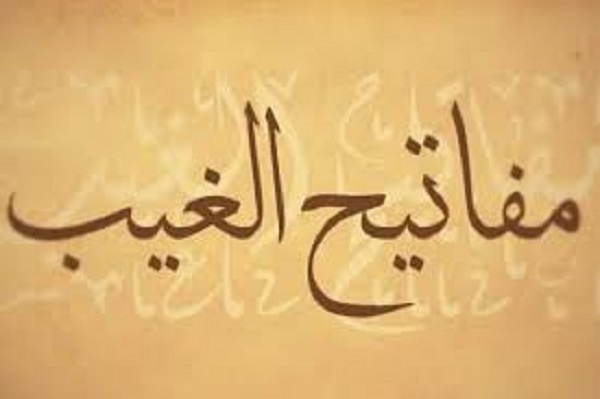 مفاتيح الغيب